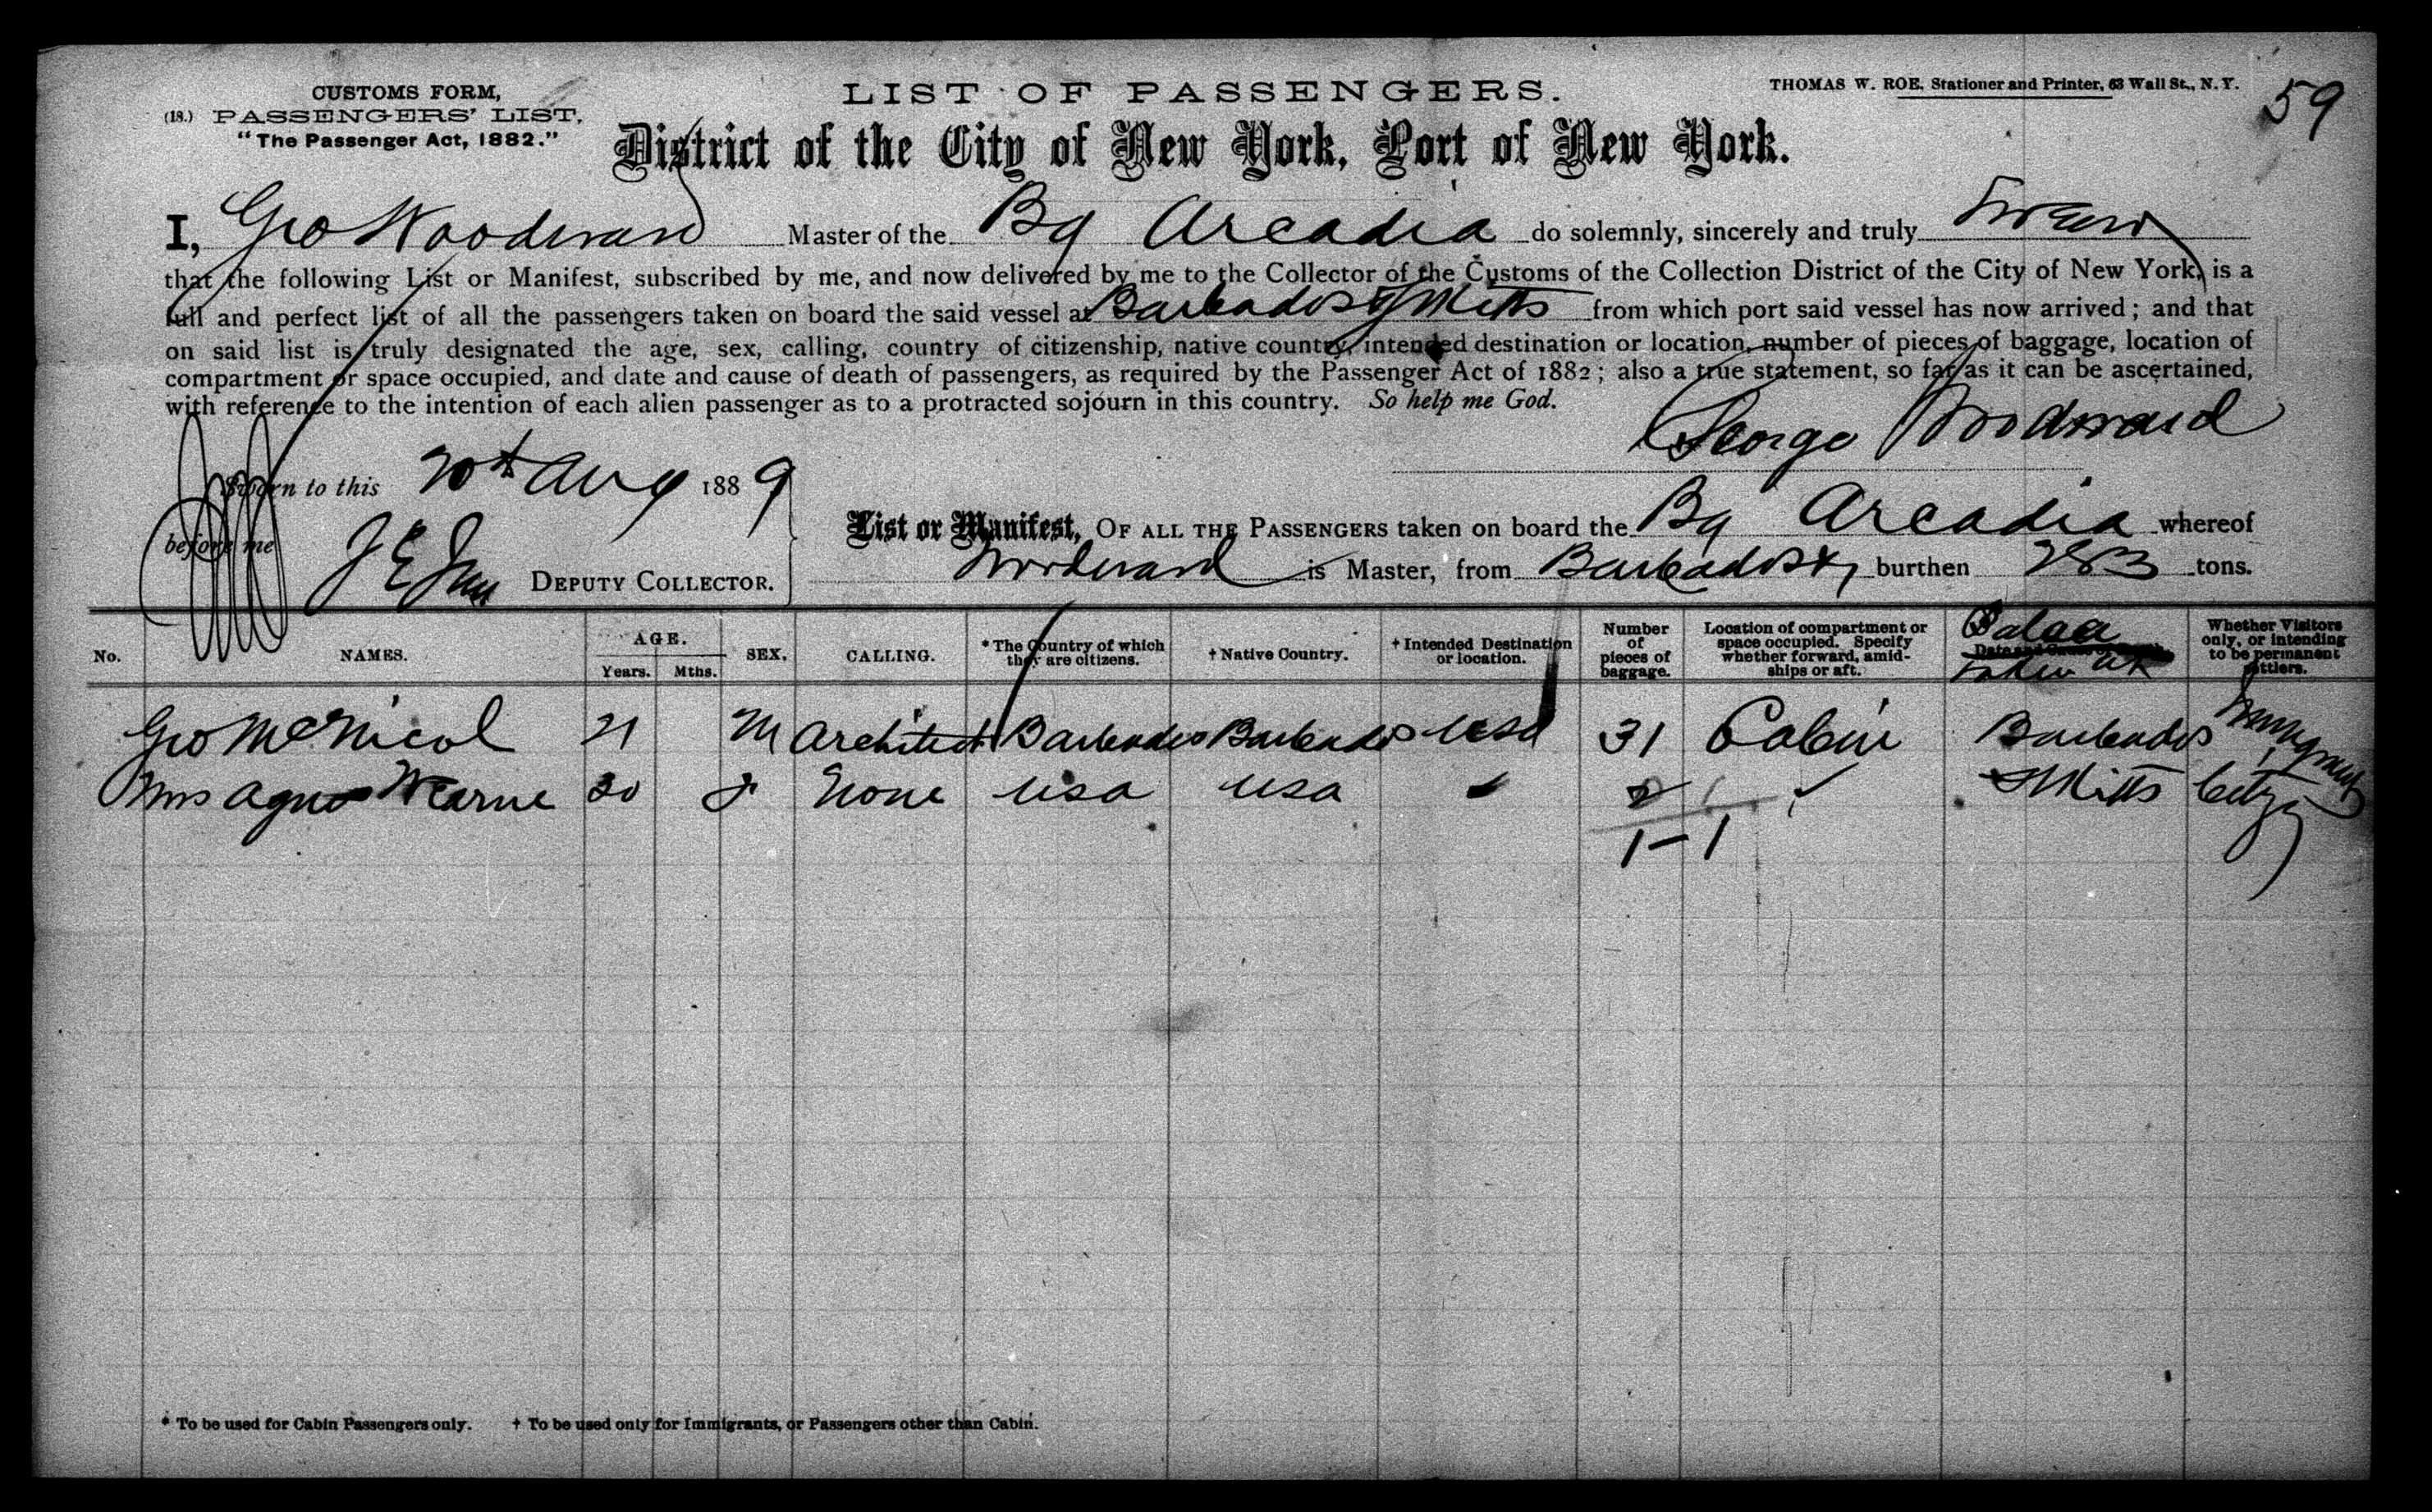 CUSTOMS FORM,
(18.) PASSENGERS' LIST,
"The Passenger Act, 1882."
LIST OF PASSENGERS.
THOMAS W. ROE, Stationer and Printer, 63 Wall St., N. Y.
59
District of the City of New York, Port of New York.
I, Geo Woodward Master of the Bg Arcadia do solemnly, sincerely and truly swear
that the following List or Manifest, subscribed by me, and now delivered by me to the Collector of the Customs of the Collection District of the City of New York, is a
full and perfect list of all the passengers taken on board the said vessel at Barbados & St Kitts from which port said vessel has now arrived; and that
on said list is truly designated the age, sex, calling, country of citizenship, native country, intended destination or location, number of pieces of baggage, location of
compartment or space occupied, and date and cause of death of passengers, as required by the Passenger Act of 1882; also a true statement, so far as it can be ascertained,
with reference to the intention of each alien passenger as to a protracted sojourn in this country. So help me God.
George Woodward
Sworn to this 20th Aug 1889
before me
DEPUTY COLLECTOR.
List or Manifest, OF ALL THE PASSENGERS taken on board the Bg Arcadia whereof
Woodward is Master, from Barbados & burthen 283 tons.
No. NAMES. AGE. Years. Mths. SEX. CALLING. * The Country of which they are citizens. † Native Country. † Intended Destination or location. Number of pieces of baggage. Location of compartment or space occupied. Specify whether forward, amidships or aft. taken at Whether Visitors only, or intending to be permanent settlers.
Geo McNicol 21 M Architect Barbados Barbados USA 31 Cabin Barbados Immigrant
Mrs Agnes Wearne 30 f None USA USA 2 St Kitts Citz
1-1
* To be used for Cabin Passengers only. † To be used only for Immigrants, or Passengers other than Cabin.